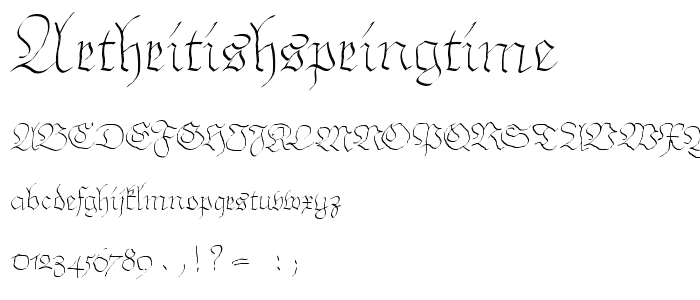 Arthritishspringtime
ABCDEFGHIJKLMNOPQRSTUVWXY
abcdefghijklmnopqrstuvwxyz
0123456789 . , ! ? = : ;